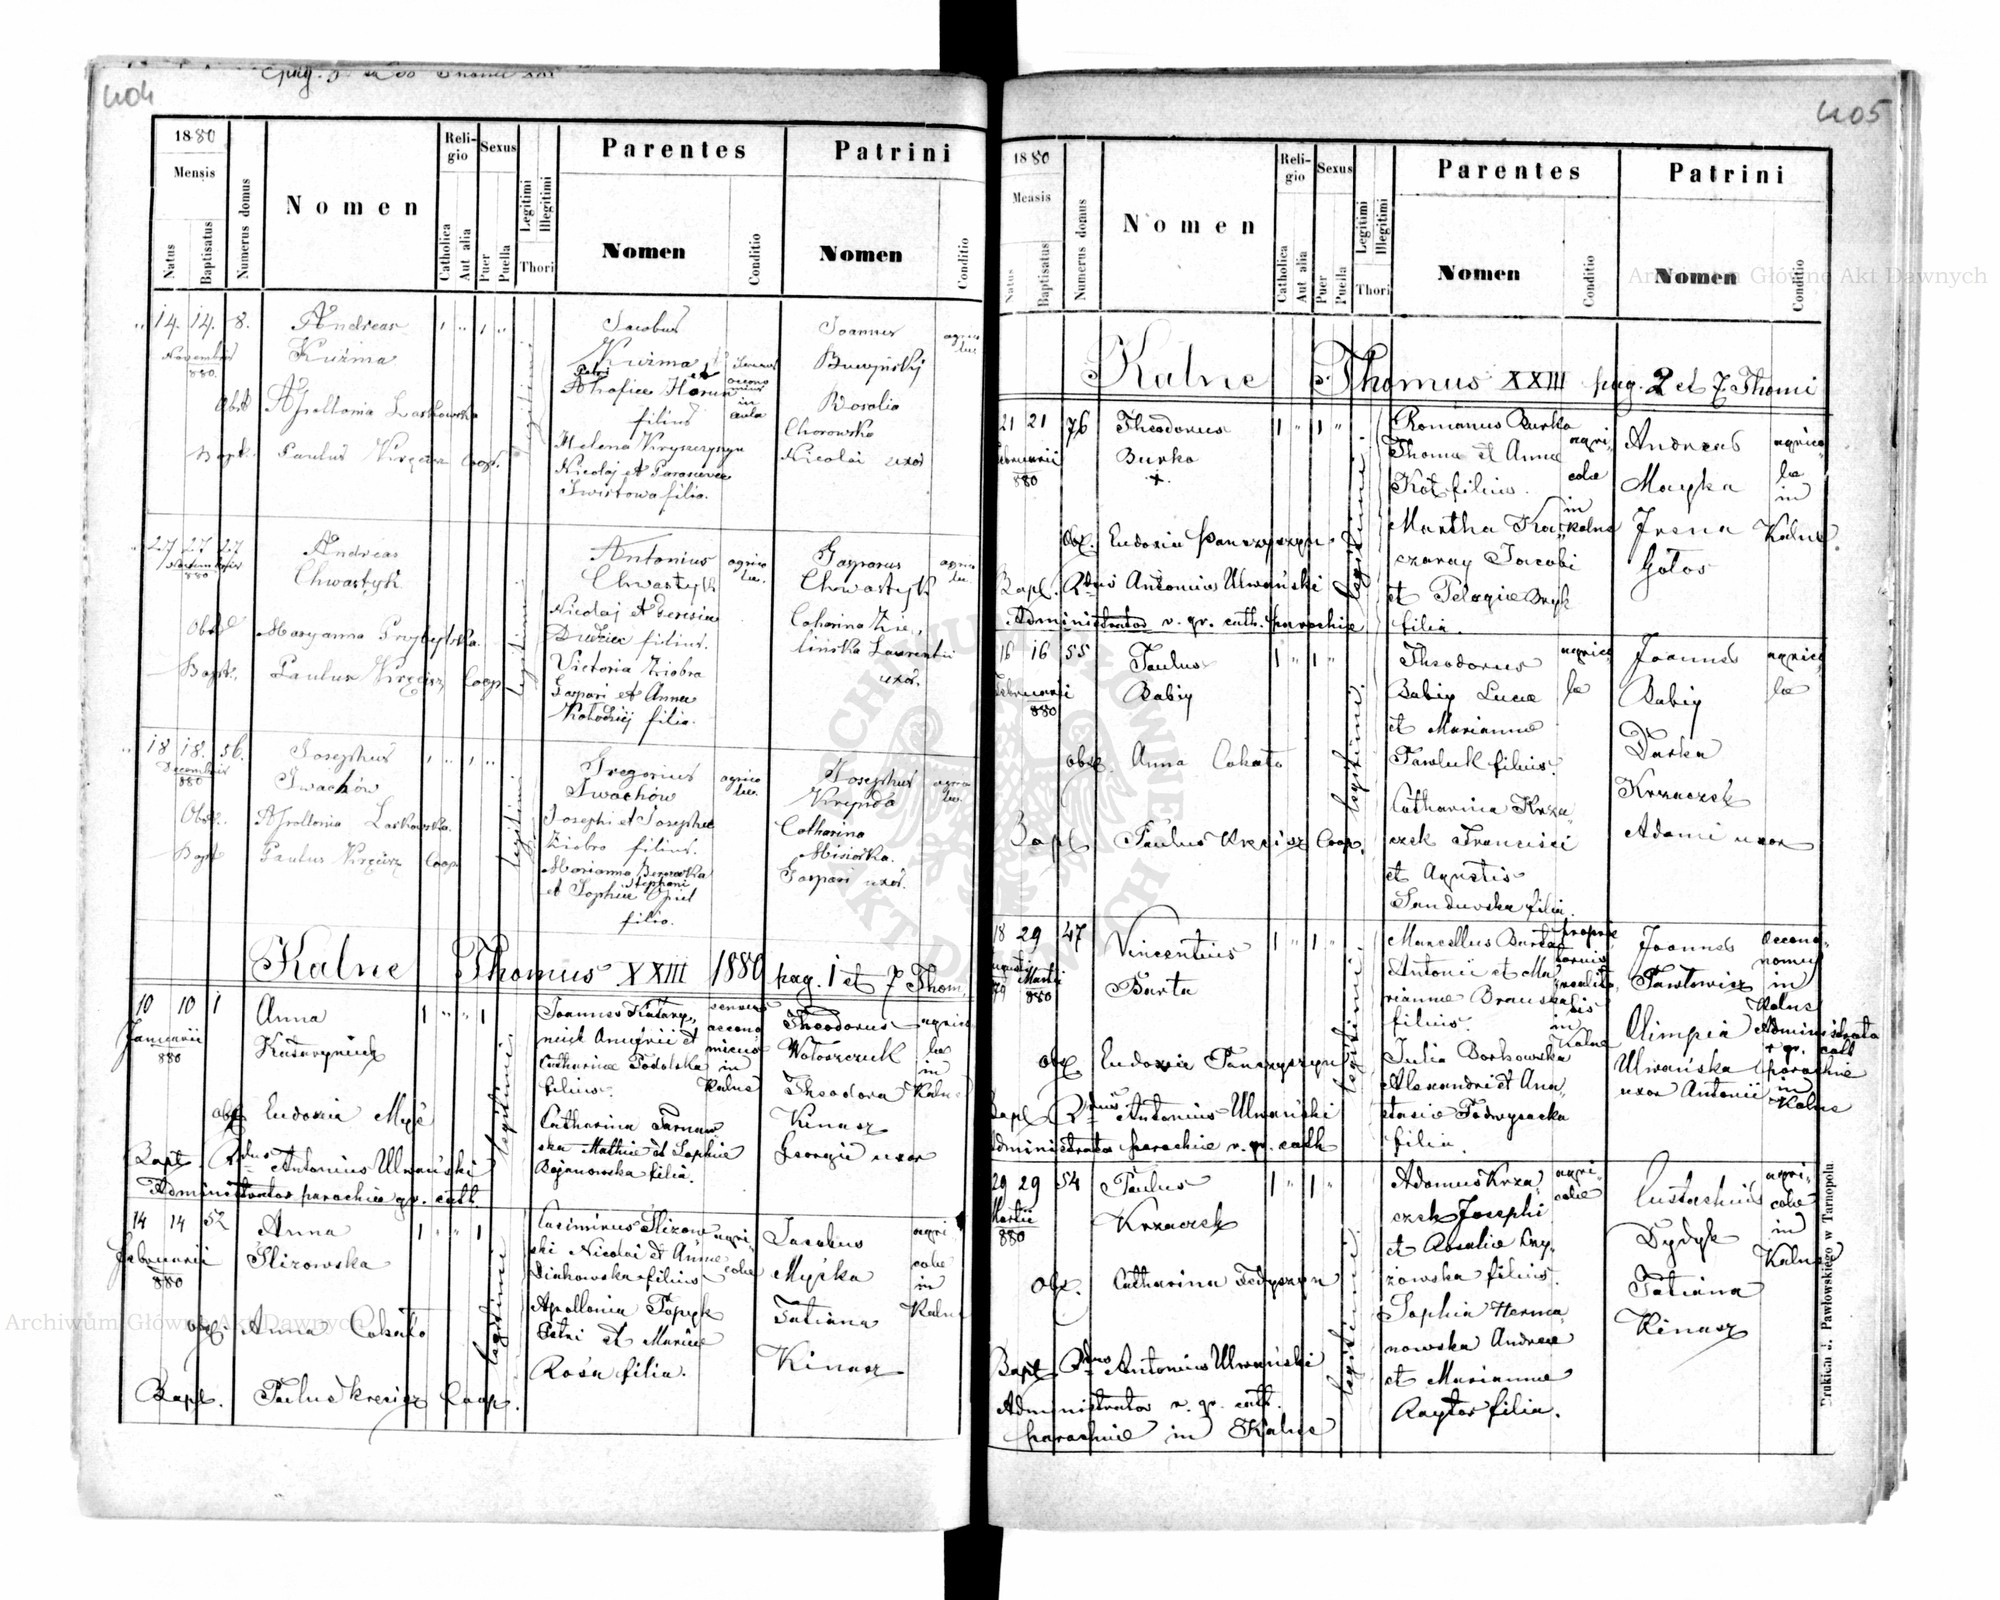 404
1880
Mensis
Natus
Baptisatus
Numerus domus
Nomen
Religio
Catholica
Aut alia
Sexus
Puer
Puella
Legitimi
Illegitimi
Thori
Parentes
Nomen
Conditio
Patrini
Nomen
Conditio
14. 14. 8.
Novembris
880.
Andreas
Kuźma
Obst. Apollonia Laskowska
Bapt. Paulus Kręcisz Coop.
Jacobus
Kuźma
Petri et
filius
Helena Kryszczyszyn
Nicolaj et Parascevae
Iwistowa filia.
in
aula
Joannes
Rosalia
Chorowska
Nicolai uxor
agrico
lae.
27 27 27
880
Andreas
Chwastyk
Obst. Maryanna Przybylska.
Bapt. Paulus Kręcisz Coop.
legitimi
Antonius
Chwastyk
Nicolaj et Teresia
Dudziec filius.
Victoria Ziobra
Gaspari et Anna
Kołodziej filia.
agrico
lae.
Gasparus
Chwastyk
Catharina Zie„
lińska Laurentii
uxor.
agrico
lae.
18 18. 56.
Decembris
880
Josephus
Iwachów
Obst. Apollonia Laskowska.
Bapt Paulus Kręcisz Coop
legitimi
Gregorius
Iwachów
Josephi et Josepha
Ziobro filius.
Marianna Bernacka
Stephani
et Sophia Opiel
filia.
agrico
lae.
Josephus
Krynda
Catharina
Misiorka.
Gaspari uxor.
agrico
lae.
Kalne Thomus XXIII 1880 pag. 1 et 7 Thom.
10 10 1
Januarii
880
Anna
Kataryniuk
obst Eudoxia Myć
Bapt. Rdus Antonius Ulwański
Administrator parochiae gr. cath.
legitimi
Joannes Katary„
niuk Onufrii et
Catharinae Podolska
filius.
Catharina Tarnaw
ska Mathiae et Sophiae
Bojanowska filia.
servus
oecono
micus
in
Kalne
Theodorus
Wołoszczuk
Theodora
Kinasz
Georgii uxor
agrico
la
in
Kalne
14 14 52
Februarii
880
Anna
Slizowska
obst. Anna Cokało
Bapt. Paulus Kręcisz Coop.
legitimi
Casimirus Slizow
ski Nicolai et Anna
filius
Apollonia Papyk
Petri et Mariae
Rosa filia.
agri
colae
Jacobus
Myśka
Tatiana
Kinasz
agri
colae
in
Kalne
405
1880
Mensis
Natus
Baptisatus
Numerus domus
Nomen
Religio
Catholica
Aut alia
Sexus
Puer
Puella
Legitimi
Illegitimi
Thori
Parentes
Nomen
Conditio
Patrini
Nomen
Conditio
Kalne Thomus XXIII pag. 2 et 7. Thomi
21 21 76
Februarii
880
Theodorus
Burko
+.
Obst. Eudoxia Panczyszyn
Bapt. Rdus Antonius Ulwański
Administrator r. gr. cath. parochiae
legitimi
Romanus Burko
Thoma et Anna
Kot filius.
Martha Tka„
czaray Jacobi
et Pelagia Bryk
filia.
agri-
colae
in
Kalne
Andreas
Mayka
Irena
Gołos
agrico-
lae
in
Kalne.
16 16 55
Februarii
880
Paulus
Babiy
obst. Anna Cokało
Bapt Paulus Kręcisz Coop.
legitimi
Theodorus
Babiy Lucae
et Marianna
Pawluk filius.
Catharina Krza-
czek Francisci
et Agnetis
Sandurska filia.
agrico
la
Joannes
Babiy
Darka
Krzaczek
Adami uxor
agrico
la
18 29 47
Augusti Martii
79 880
Vincentius
Barta
obst Eudoxia Panczyszyn
Bapt Rdus Antonius Ulwański
Administrator parochiae r. gr. cath
legitimi
Marcellus Barta
Antonii et Ma
rianna
filius.
Julia Borkowska
Alexandri et Ana
stasia Podwysocka
filia
in
Kalne
Joannes
Pawłowicz
Olimpia
Ulwańska
uxor Antonii
oecono-
nomus
in
Kalne
Administrato
r gr. cath
parochiae
in
Kalne
29 29 54
Martii
880
Paulus
Krzaczek
Obst. Catharina Fedyszyn
Bapt Rdus Antonius Ulwański
Administrator r. gr. cath.
parochiae in Kalne
legitimi
Adamus Krza
czek Josephi
et Rosalia Kry
żowska filius.
Sophia Herma
nowska Andreae
et Marianna
Raytar filia.
agri-
colae
Eustachius
Dydyk
Tatiana
Kinasz
agri-
colae
in
Kalne
Drukiem J. Pawłowskiego w Tarnopolu.
Archiwum Główne Akt Dawnych
Archiwum Główne Akt Dawnych
ARCHIWUM GŁÓWNE AKT DAWNYCH